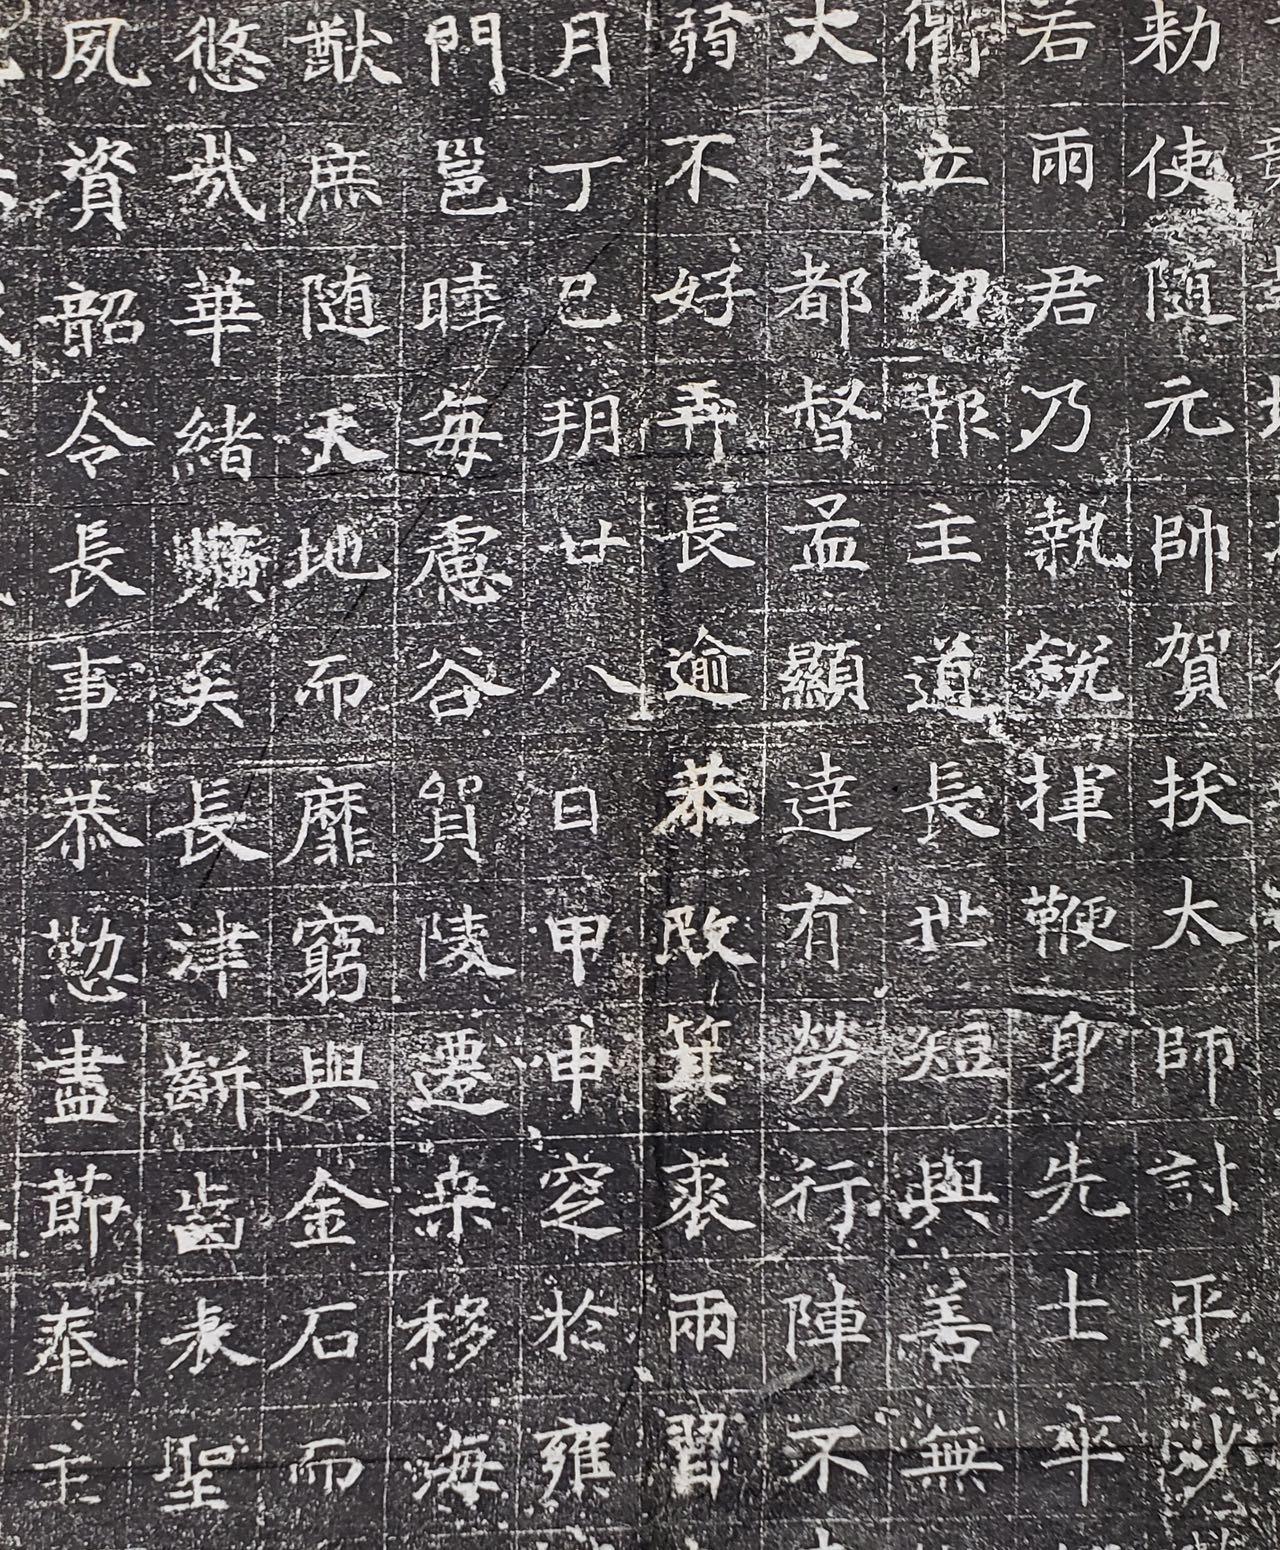 勑使随元帥賀抜太師討平沙
若雨君乃執鋭揮鞭身先士卒
衛立切報主道長世短與善無
大夫都督孟顯達有勞行陣不
弱不好弄長逾恭敏箕裘兩習
月丁巳玥廿八日甲申窆於雍
門邕睦每慮谷貿陵遷桒移海
猷庶随天地而靡窮與金石而
悠哉華緒曠矣長津齗齒表聖
夙資韶令長事恭懃盡莭奉主